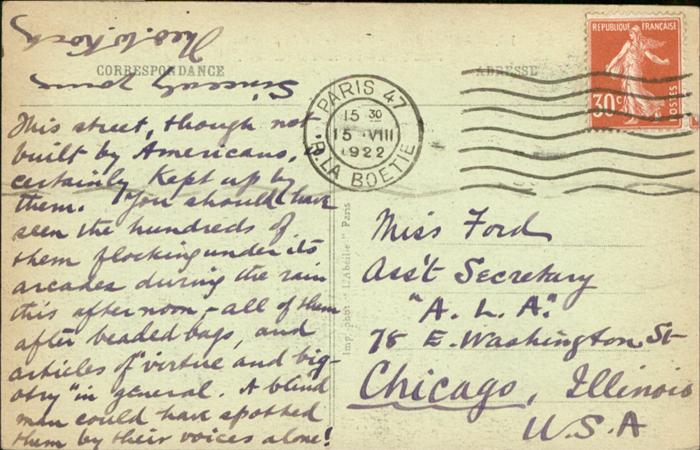 CORRESPONDANCE
ADRESSE
RÉPUBLIQUE FRANÇAISE
POSTES
30c
PARIS 47
15 30
15 VIII
1922
R. LA BOETIE
This street, though not
built by Americans, is
certainly kept up by
them. You should have
seen the hundreds of
them flocking under its
arcades during the rain
this afternoon,- all of them
after beaded bags, and
articles of "virtue and big-
otry" in general. A blind
man could have spotted
them by their voices alone!
Sincerely yours
Theo. W. Koch
Imp. phot. "L'Abeille" Paris
Miss Ford
Ass't Secretary
"A. L. A."
78 E. Washington St
Chicago, Illinois
U.S.A